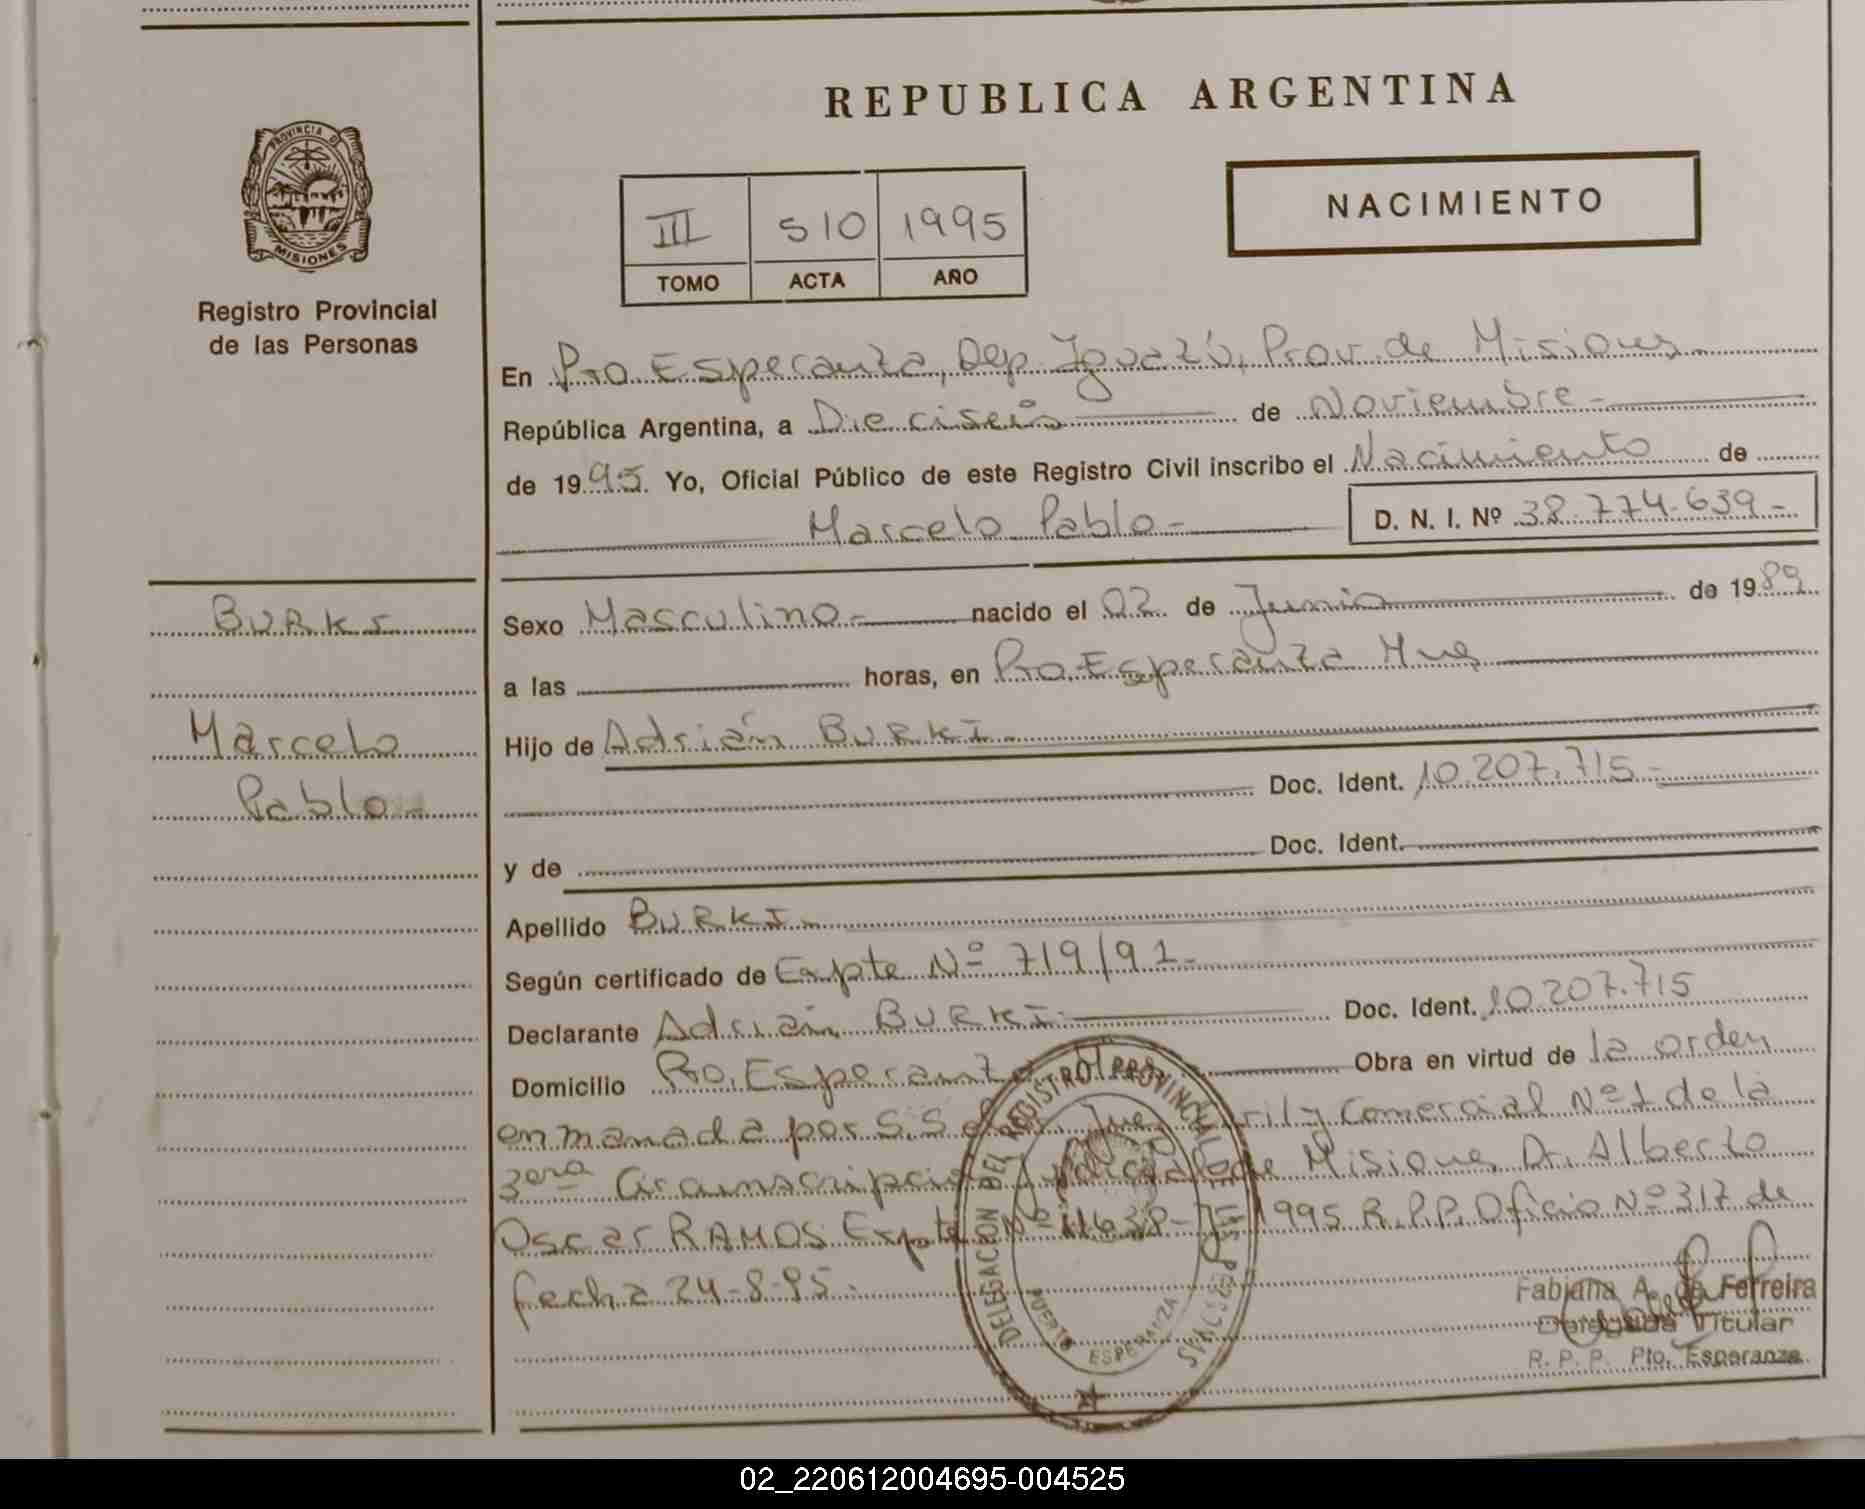 REPUBLICA ARGENTINA
PROVINCIA DE
MISIONES
Registro Provincial
de las Personas
III 510 1995
TOMO ACTA AÑO
NACIMIENTO
En Pto Esperanza, Dep. Iguazú, Prov. de Misiones
República Argentina, a Dieciseis de Noviembre -
de 1995. Yo, Oficial Público de este Registro Civil inscribo el Nacimiento de
Marcelo Pablo - D. N. I. Nº 38.774.639 -
BURKI
Marcelo
Pablo -
Sexo Masculino - nacido el 02 de Junio de 1989
a las horas, en Pto. Esperanza Mnes
Hijo de Adrián BURKI -
Doc. Ident. 10.207.715 -
y de Doc. Ident.
Apellido BURKI -
Según certificado de Expte Nº 719/91 -
Declarante Adrián BURKI - Doc. Ident. 10.207.715
Domicilio Pto. Esperanza Obra en virtud de la orden
enmanada por S.S. el Juez Civil y Comercial Nº 1 de la
3era Circunscripción Judicial de Misiones Dr. Alberto
Oscar RAMOS Expte Nº 11638 1995 R.P.P. Oficio Nº 317 de
fecha 24-8-95 -
DELEGACION DEL REGISTRO PROVINCIAL DE LAS PERSONAS
PUERTO ESPERANZA
Fabiana A. de Ferreira
Delegada Titular
R. P. P. Pto. Esperanza
02_220612004695-004525